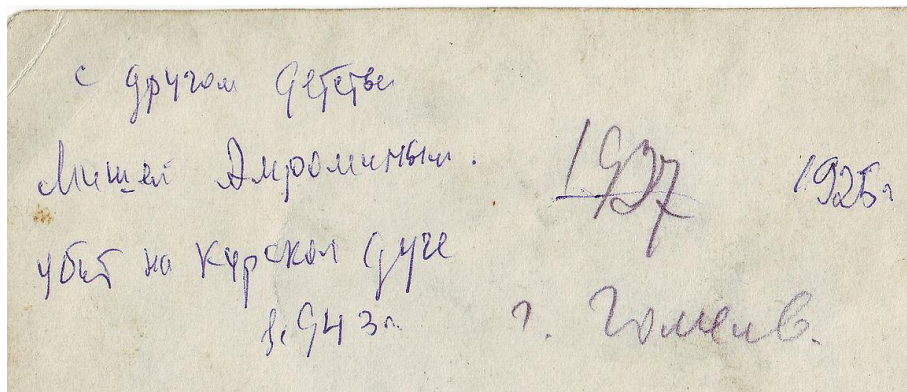 с другом детства
Мишей Амроминым.
убит на Курской дуге
в 943г.
1937
1925г
г. Гомель.